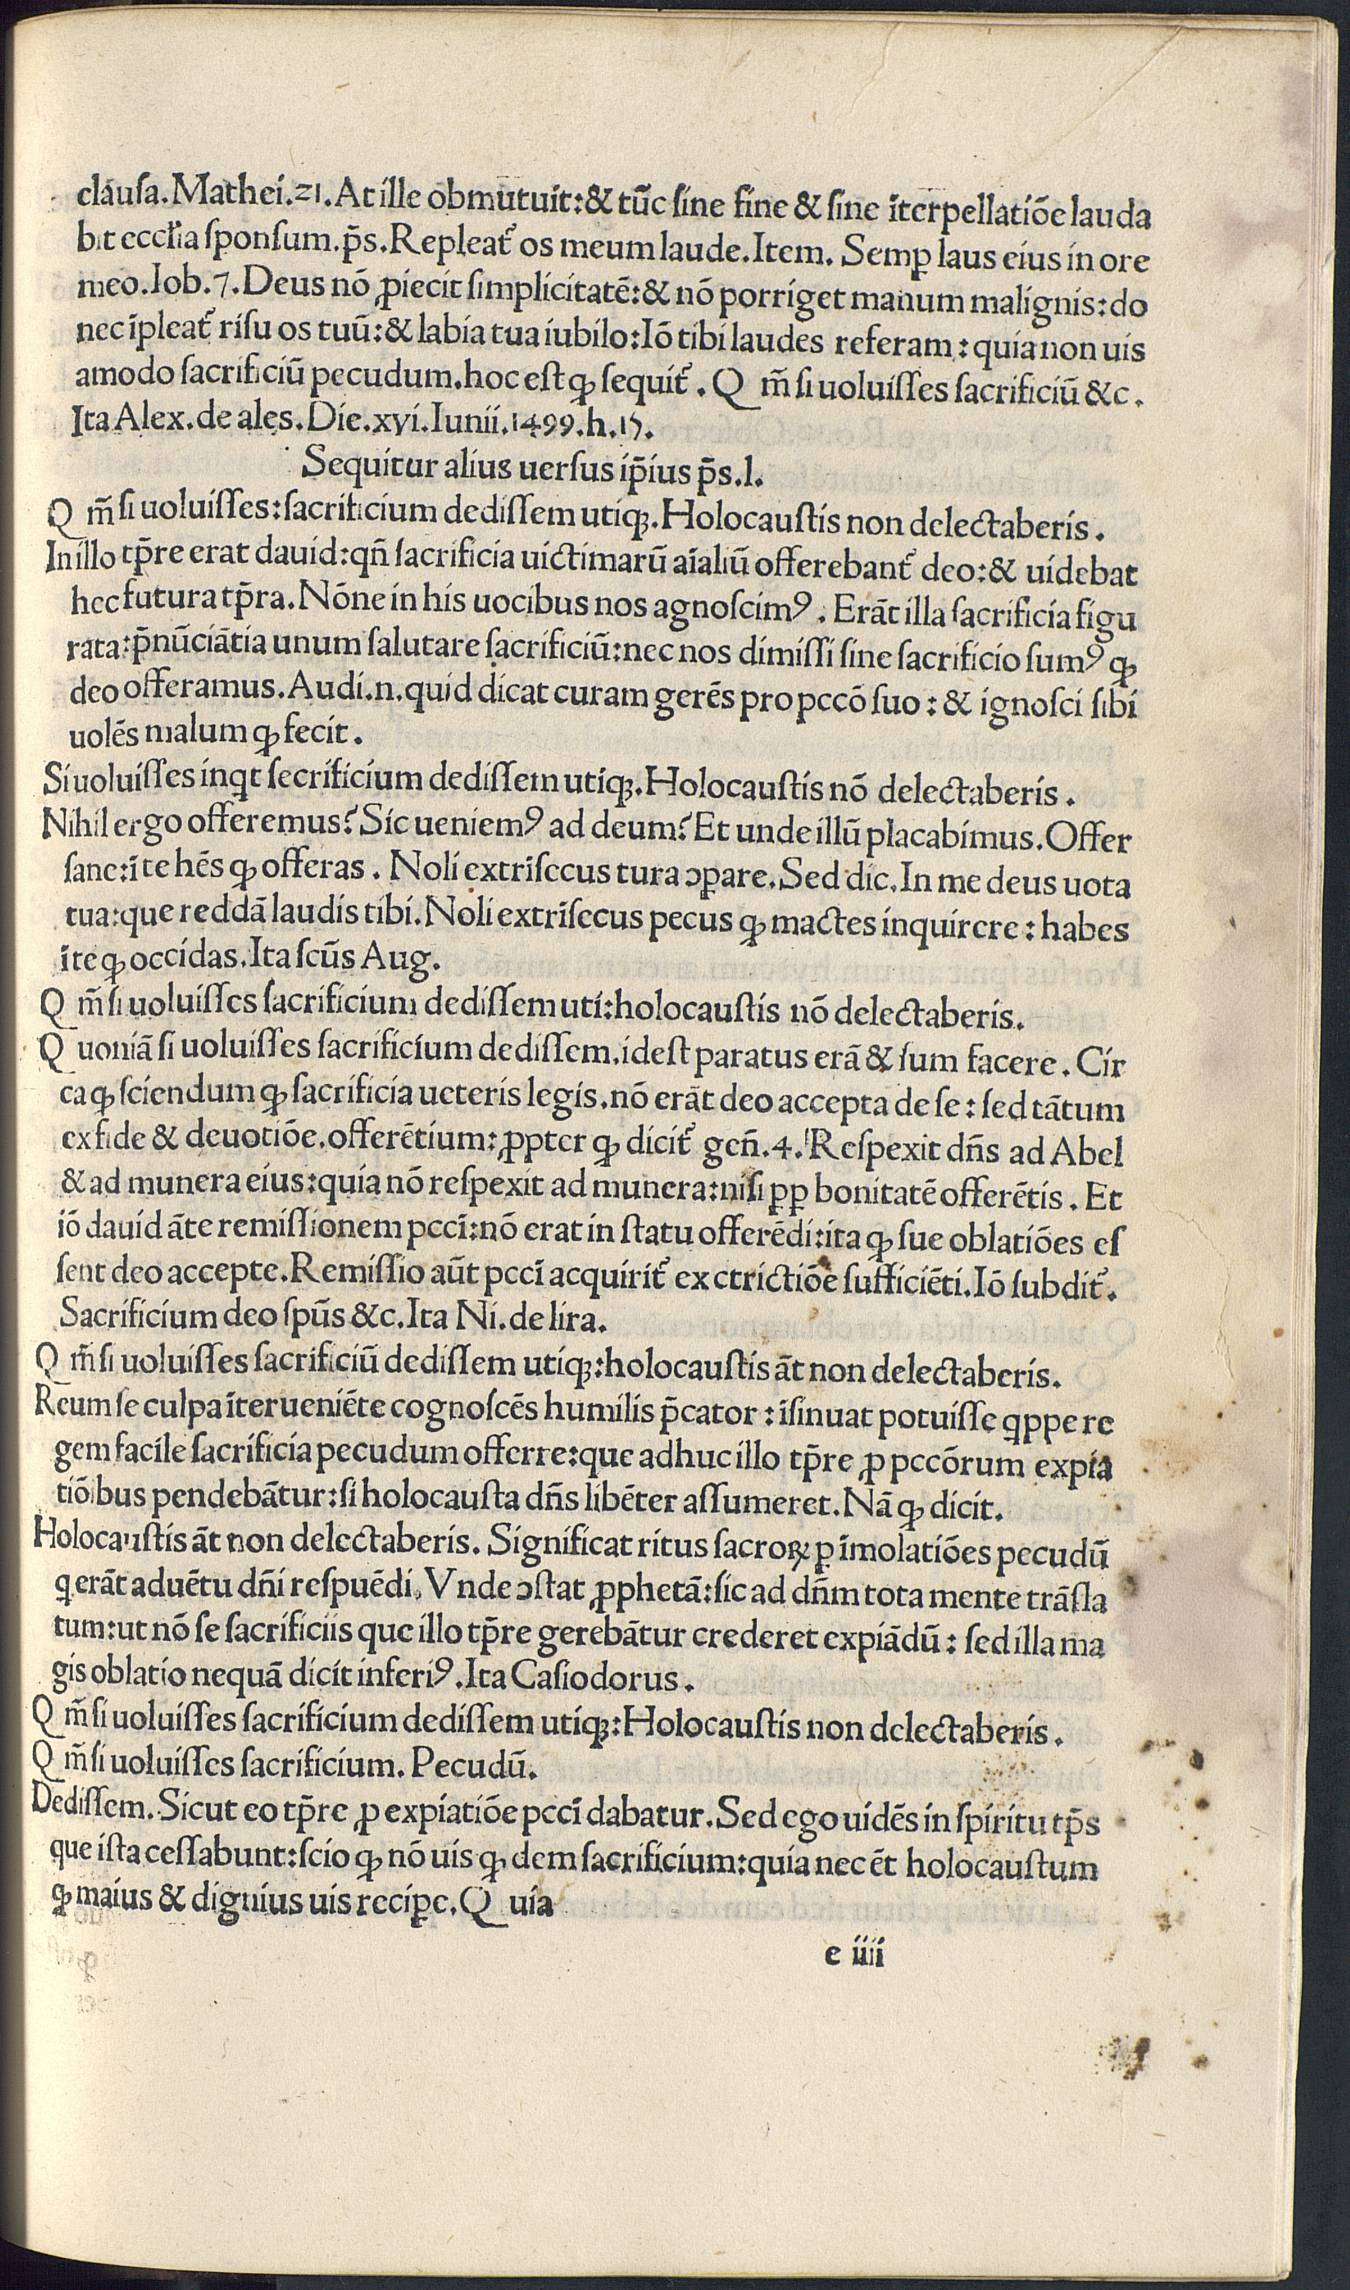 clausa.Mathei.21.At ille obmutuit:& tūc sine fine & sine ĩterpellatiõe lauda
bit eccl'ia sponsum.p̄s.Repleat᷑ os meum laude.Item. Semꝑ laus eius in ore
meo.Iob.7.Deus nõ ꝓiecit simplicitatẽ:& nõ porriget manum malignis:do
nec ĩpleat᷑ risu os tuũ:& labia tua iubilo:Iõ tibi laudes referam:quia non uis
amodo sacrificiũ pecudum.hoc est ꝙ sequit᷑. Qm̃ si uoluisses sacrificiũ &c.
Ita Alex.de ales.Die.xvi.Iunii.1499.h.15.
Sequitur alius uersus ip̄ius p̄s.l.
Qm̃ si uoluisses:sacrificium dedissem utiqꝫ.Holocaustis non delectaberis.
In illo tp̄re erat dauid:qñ sacrificia uictimarũ aĩaliũ offerebant᷑ deo:& uidebat
hec futura tp̄ra.Nõne in his uocibus nos agnoscimꝰ. Erãt illa sacrificia figu
rata:p̄nũciãtia unum salutare sacrificiũ:nec nos dimissi sine sacrificio sumꝰ ꝙ
deo offeramus.Audi.n.quid dicat curam gerẽs pro pccõ suo:& ignosci sibi
uolẽs malum ꝙ fecit.
Si uoluisses inqt secrificium dedissem utiqꝫ.Holocaustis nõ delectaberis.
Nihil ergo offeremus? Sic ueniemꝰ ad deum? Et unde illũ placabimus.Offer
sane:ĩ te hẽs ꝙ offeras. Noli extrĩsecus tura ↄꝑare.Sed dic.In me deus uota
tua:que reddã laudis tibi.Noli extrĩsecus pecus ꝙ mactes inquirere:habes
ĩ te ꝙ occidas.Ita scũs Aug.
Qm̃ si uoluisses sacrificium dedissem uti:holocaustis nõ delectaberis.
Quoniã si uoluisses sacrificium dedissem.idest paratus erã & sum facere. Cir
ca ꝙ sciendum ꝙ sacrificia ueteris legis.nõ erãt deo accepta de se:sed tãtum
ex fide & deuotiõe.offerẽtium:ꝓpter ꝙ dicit᷑ geñ.4.Respexit dñs ad Abel
& ad munera eius:quia nõ respexit ad munera:nisi ꝑꝑ bonitatẽ offerẽtis. Et
iõ dauid ãte remissionem pccĩ:nõ erat in statu offerẽdi:ita ꝙ sue oblatiões es
sent deo accepte.Remissio aũt pccĩ acquirit᷑ ex ctrictiõe sufficiẽti.Iõ subdit᷑.
Sacrificium deo spũs &c.Ita Ni.de lira.
Qm̃ si uoluisses sacrificiũ dedissem utiqꝫ:holocaustis ãt non delectaberis.
Reum se culpa ĩterueniẽte cognoscẽs humilis p̄cator:ĩsinuat potuisse qppe re
gem facile sacrificia pecudum offerre:que adhuc illo tp̄re ꝓ pccõrum expia
tiõibus pendebãtur:si holocausta dñs libẽter assumeret.Nã ꝙ dicit.
Holocaustis ãt non delectaberis. Significat ritus sacroꝝ ꝑ ĩmolatiões pecudũ
q erãt aduẽtu dñi respuẽdi. Vnde ↄstat ꝓphetã:sic ad dñm tota mente trãsla
tum:ut nõ se sacrificiis que illo tp̄re gerebãtur crederet expiãdũ:sed illa ma
gis oblatio nequã dicit inferiꝰ.Ita Casiodorus.
Qm̃ si uoluisses sacrificium dedissem utiqꝫ:Holocaustis non delectaberis.
Qm̃ si uoluisses sacrificium. Pecudũ.
Dedissem. Sicut eo tp̄re ꝓ expiatiõe pccĩ dabatur.Sed ego uidẽs in spiritu tp̄s
que ista cessabunt:scio ꝙ nõ uis ꝙ dem sacrificium:quia nec ẽt holocaustum
ꝙ maius & dignius uis reciꝑe.Quia
e iiii